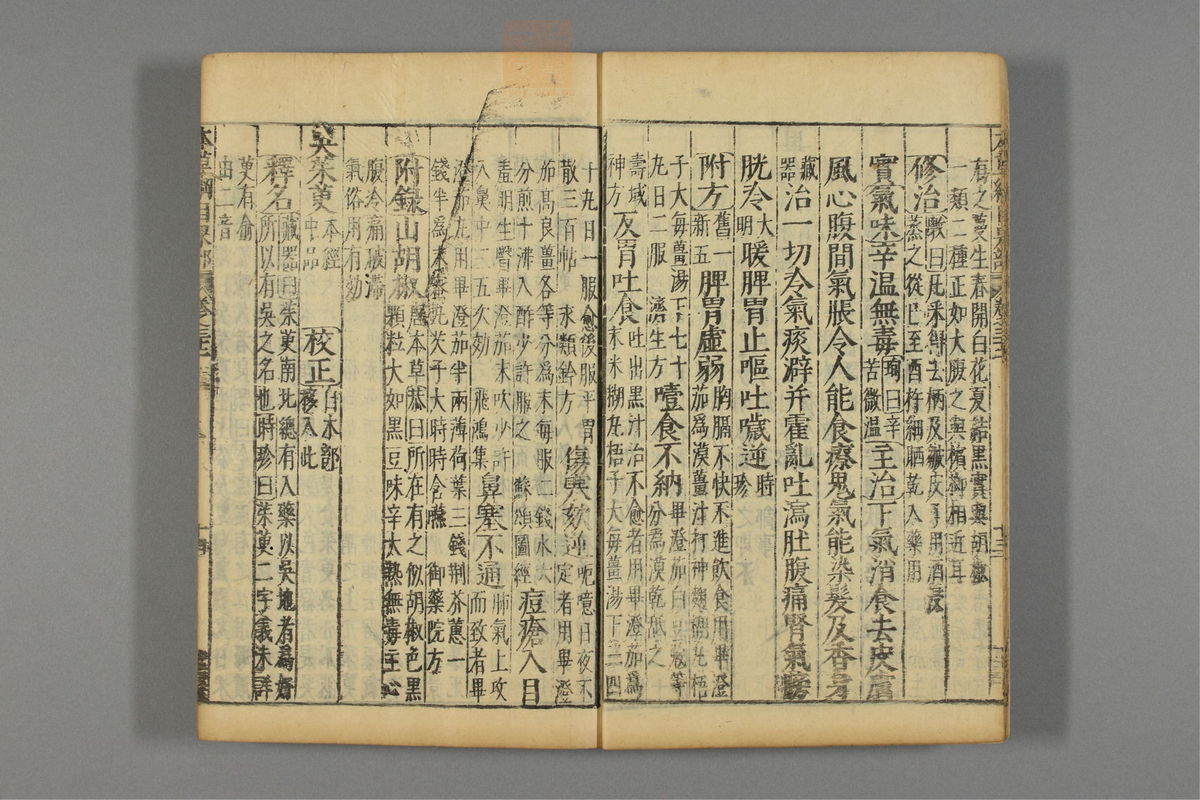 有之蔓生春開白花夏結黑實與胡椒
一類二種正如大腹之與檳榔相近耳
修治 斅曰凡采得去柄及皺皮了用酒浸
蒸之從巳至酉杵細晒乾入藥用
實氣味辛温無毒 珣曰辛
苦微温 主治下氣消食去皮膚
風心腹間氣脹令人能食療鬼氣能染髮及香身
藏
器 治一切冷氣痰澼并霍亂吐瀉肚腹痛腎氣膀
胱冷 大
明 暖脾胃止嘔吐噦逆 時
珍
附方 舊一
新五 脾胃虛弱 胸膈不快不進飲食用畢澄
茄爲漠薑汁打神麴糊丸梧
子大每薑湯下七十
九日二服 濟生方 噎食不納 畢澄茄白豆蔻等
分爲漠乾䑛之
壽域
神方 反胃吐食 吐出黑汁治不愈者用畢澄茄爲
末米糊丸梧子大每薑湯下三四
十九日一服愈後服平胃
散三百帖 永類鈐方 傷寒欬逆 呃噫日夜不
定者用畢澄
茄高良薑各等分爲末每服二錢水六
分煎十沸入酢少許服之 蘇頌圖經 痘瘡入目
羞明生瞖畢澄茄末吹少許
入鼻中三五次効 飛鴻集 鼻塞不通 肺氣上攻
而致者畢
澄茄丸用畢澄茄半兩薄荷葉三錢荆芥蕙一
錢半爲末蜜丸芡子大時時含嚥 御藥院方
附錄山胡椒 唐本草恭曰所在有之似胡椒色黑
顆粒大如黑豆味辛大熱無毒主心
腹冷痛破滯
氣俗用有効
吳茱萸 本經
中品 校正 自木部
移入此
釋名 藏器曰茱萸南北總有入藥以吳地者爲好
所以有吳之名也時珍曰茱萸二字義未詳
萸有俞
由二音
本草綱目果部 卷三十二